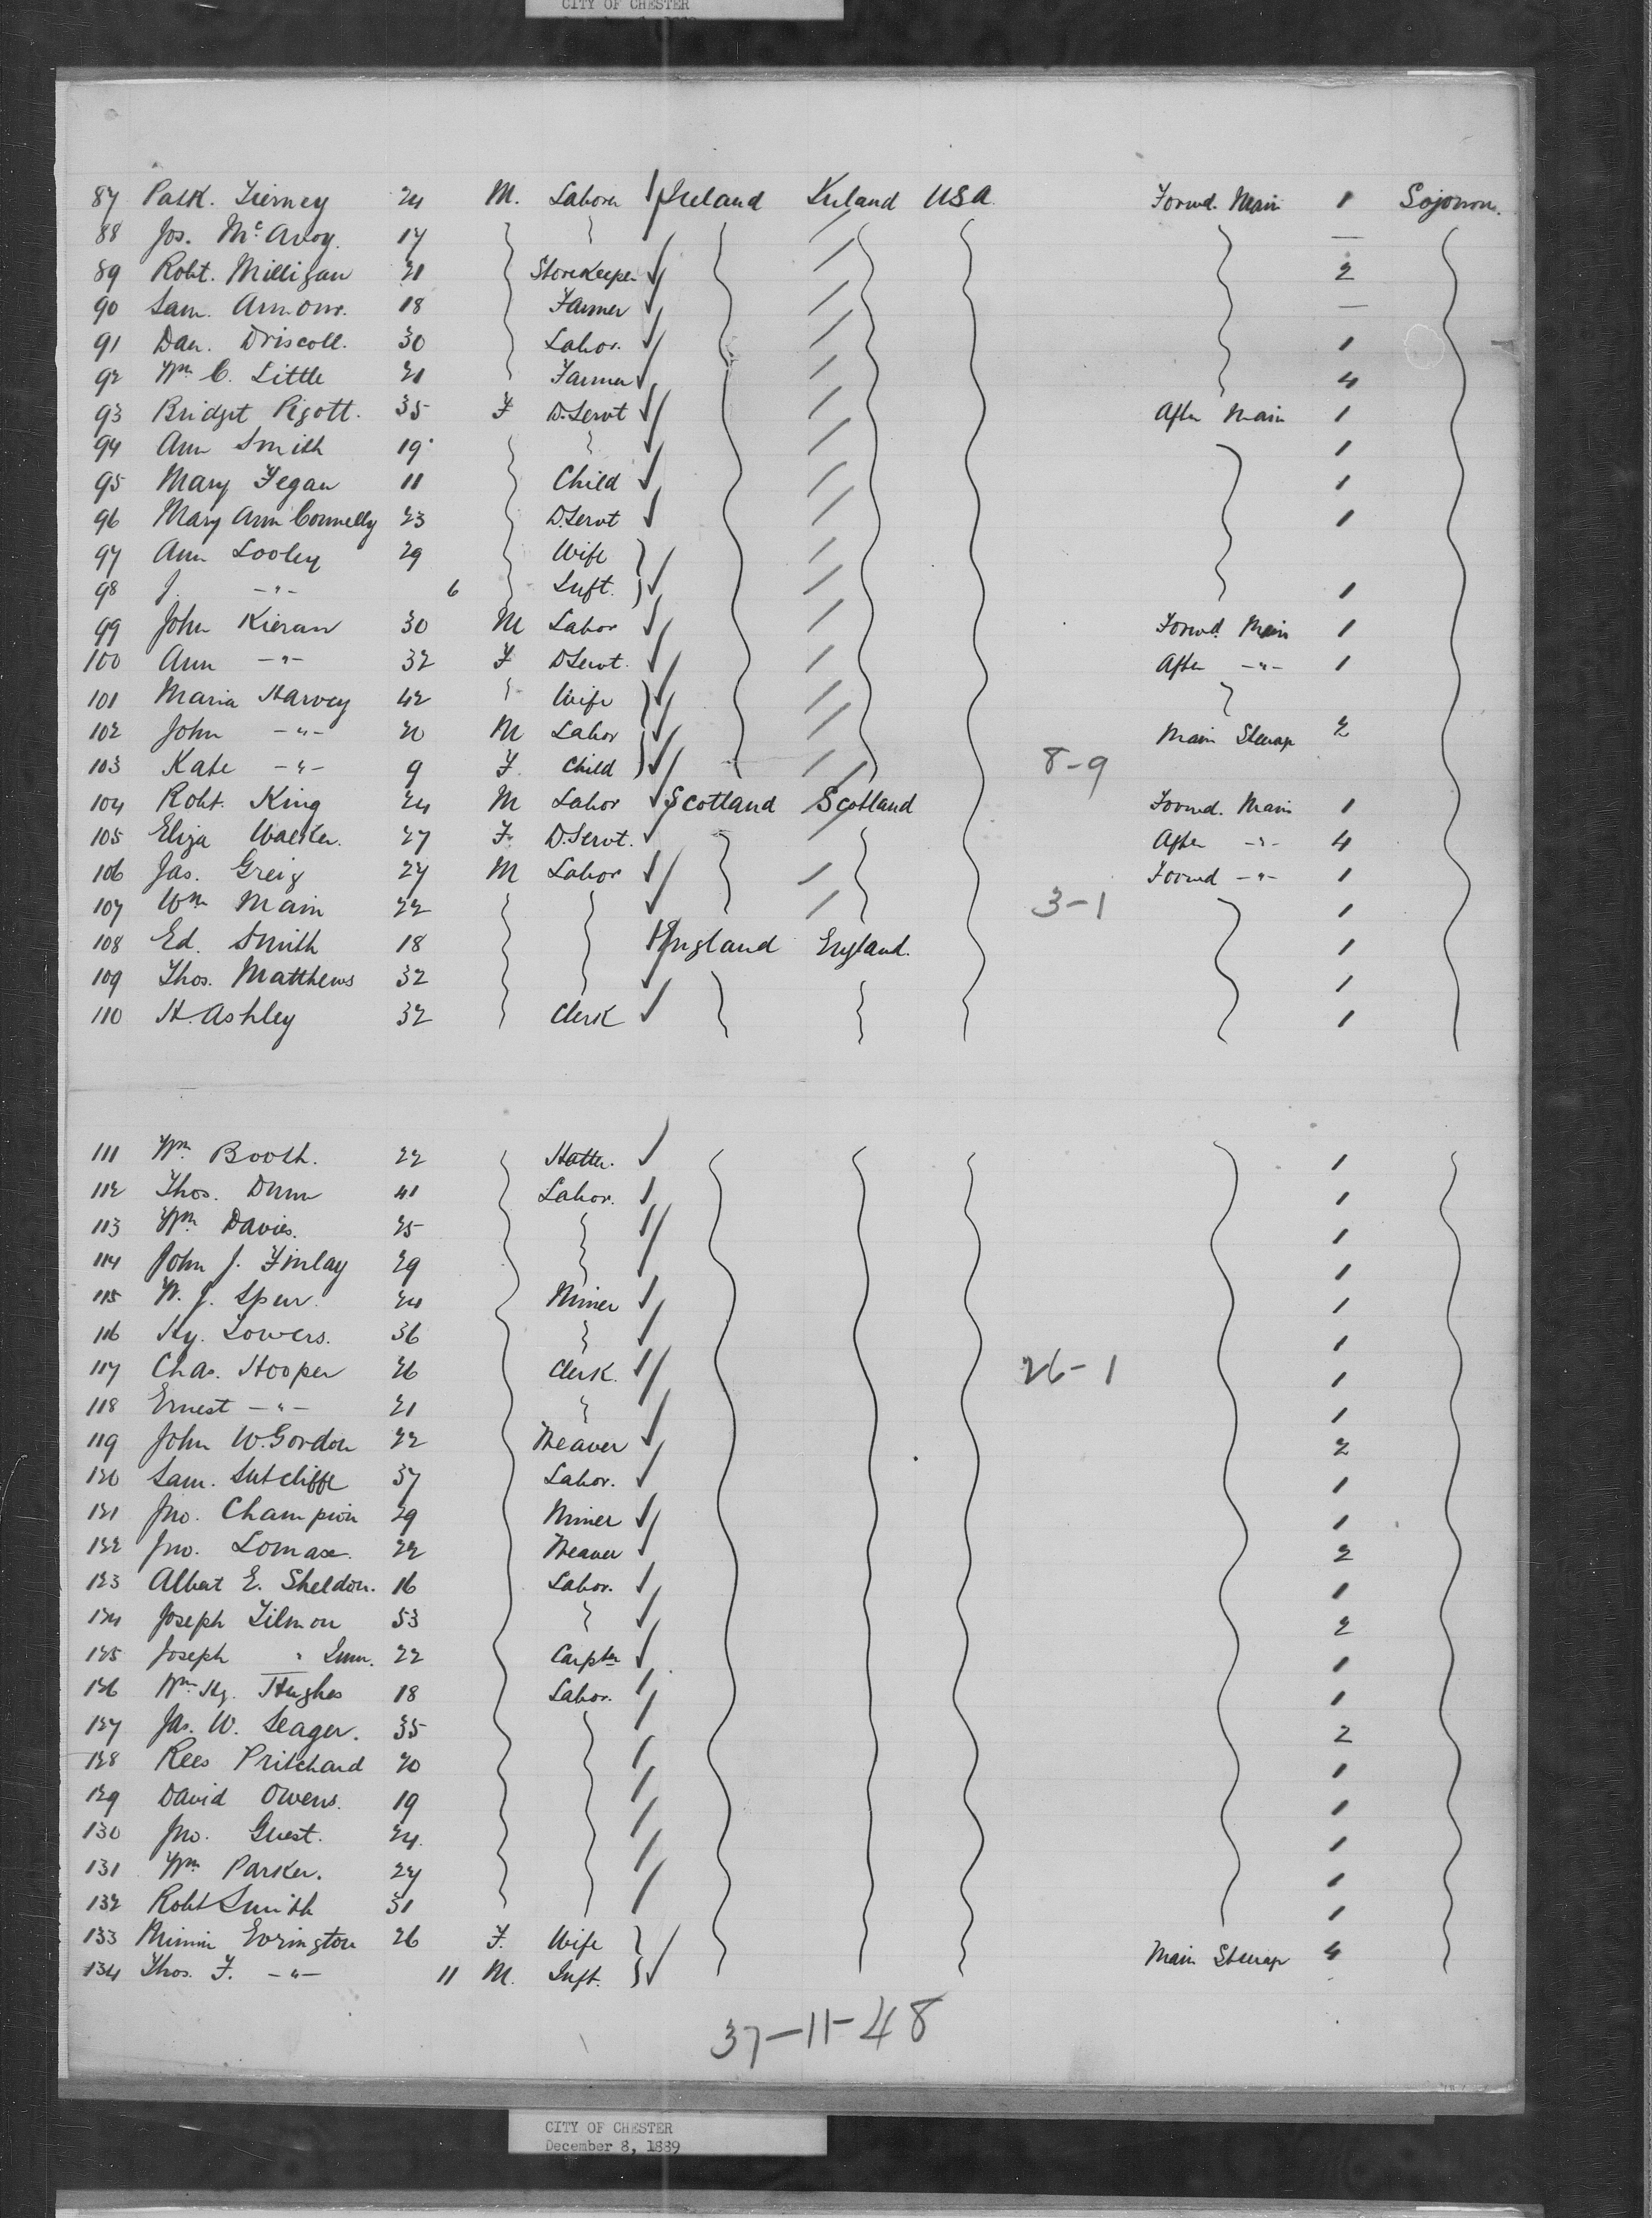 CITY OF CHESTER
87 Patk. Tierney 24 M. Laborer Ireland Ireland USA Forwd. Main 1 Sojourn.
88 Jos. McAvoy. 17 —
89 Robt. Milligan 21 Storekeeper 2
90 Sam. Armour. 18 Farmer —
91 Dan. Driscoll. 30 Labor. 1
92 Wm C. Little 21 Farmer 4
93 Bridget Pigott. 35 F D.Servt After Main 1
94 Ann Smith 19 1
95 Mary Fegan 11 Child 1
96 Mary Ann Connelly 23 D.Servt 1
97 Ann Looley 29 Wife
98 J. -"- 6 Inft. 1
99 John Kieran 30 M Labor Forwd. Main 1
100 Ann -"- 32 F D.Servt. After -"- 1
101 Maria Harvey 42 Wife
102 John -"- 20 M Labor Main Steerage 2
103 Kate -"- 9 F. Child 8-9
104 Robt. King 24 M Labor Scotland Scotland Forwd. Main 1
105 Eliza Walker. 27 F. D.Servt. After -"- 4
106 Jas. Greig 27 M Labor Forwd -"- 1
107 Wm Main 22 3-1 1
108 Ed. Smith 18 England England. 1
109 Thos. Matthews 32 1
110 H. Ashley 32 Clerk 1
111 Wm. Booth. 22 Hatter. 1
112 Thos. Dunn 41 Labor. 1
113 Wm. Davies. 25 1
114 John J. Finlay 29 1
115 W. J. Spur. 24 Miner 1
116 Hy. Lowers. 36 1
117 Chas. Hooper 26 Clerk. 26-1 1
118 Ernest -"- 21 1
119 John W. Gordon 22 Weaver 2
120 Sam. Sutcliffe 37 Labor. 1
121 Jno. Champion 29 Miner 1
122 Jno. Lomax. 22 Weaver 2
123 Albert E. Sheldon. 16 Labor. 1
124 Joseph Tilmon 53 2
125 Joseph " Junr. 22 Carpter 1
126 Wm Hy. Hughes 18 Labor. 1
127 Jas. W. Seager. 35 2
128 Rees Pritchard 20 1
129 David Owens. 19 1
130 Jno. Guest. 24. 1
131 Wm Parker. 27 1
132 Robt Smith 31 1
133 Minnie Evrington 26 F. Wife Main Steerage 4
134 Thos. F. -"- 11 M. Inft.
37-11-48
CITY OF CHESTER
December 8, 1889